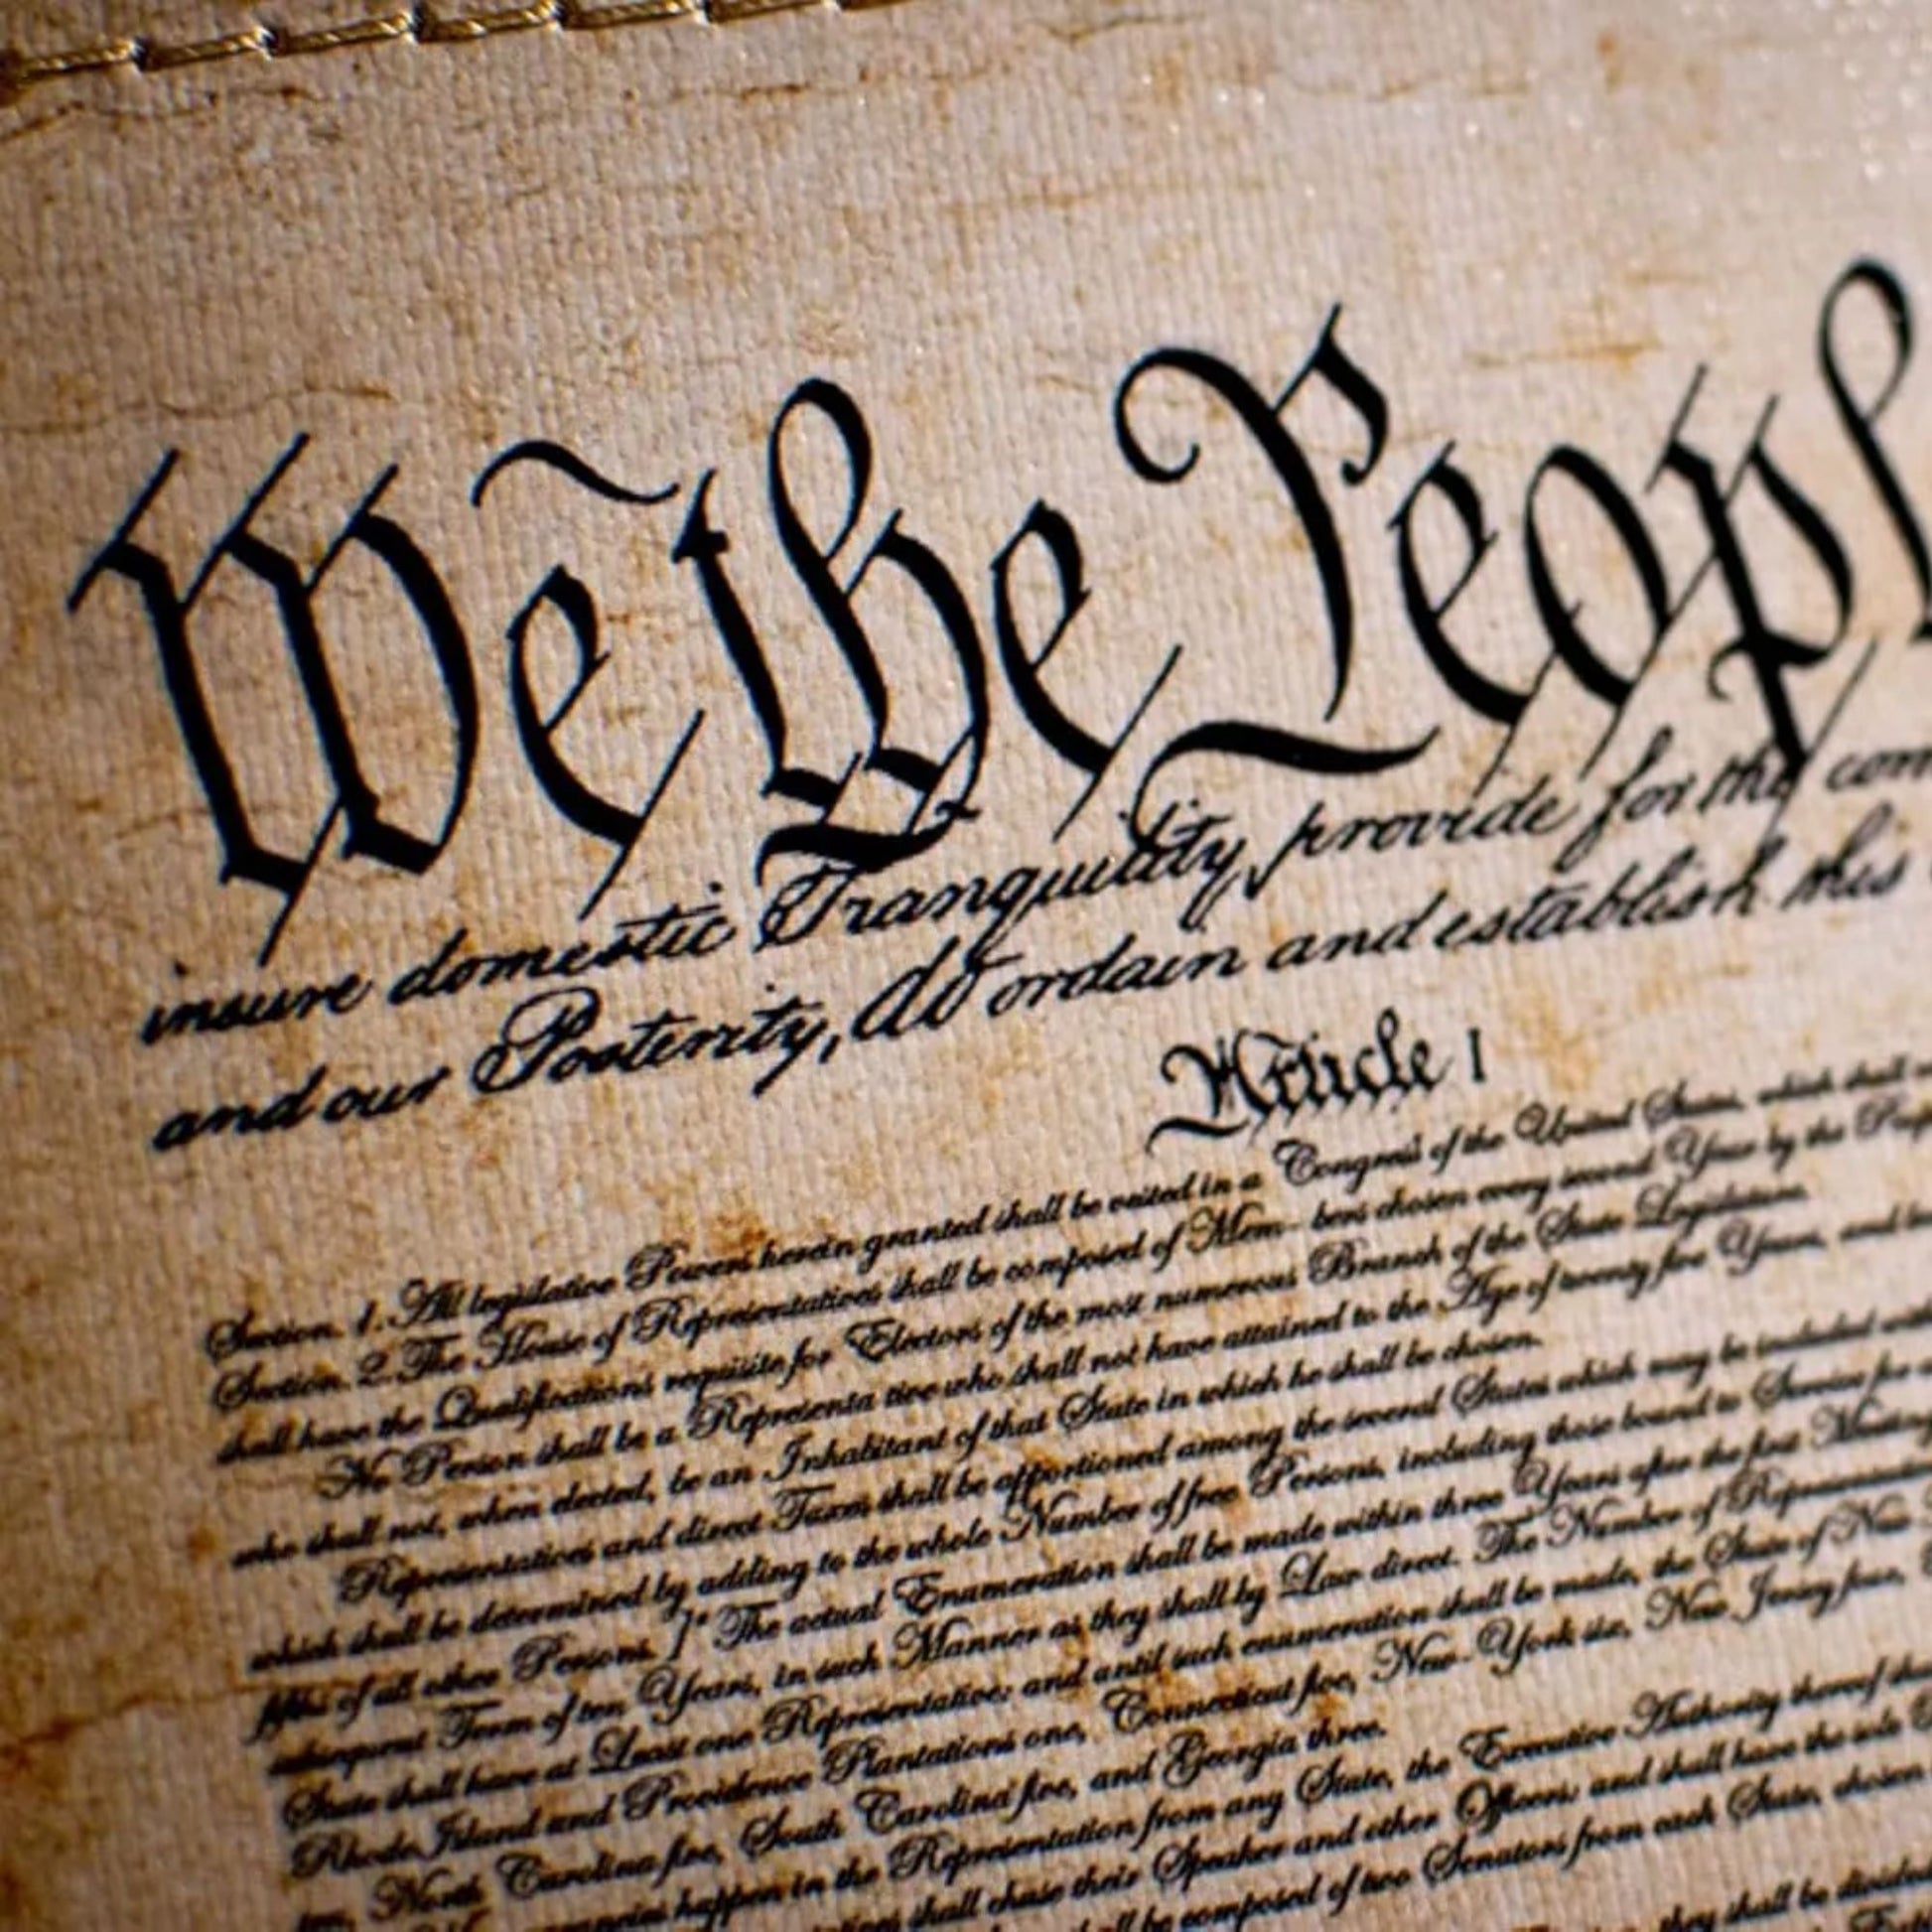 We the Peopl
insure domestic Tranquility, provide for the com
and our Posterity, do ordain and establish this
Article 1
Section. 1. All legislative Powers herein granted shall be vested in a Congress of the United States, which shall
Section. 2. The House of Representatives shall be composed of Mem- bers chosen every second Year by the Peop
shall have the Qualifications requisite for Electors of the most numerous Branch of the State Legislature.
No Person shall be a Representa tive who shall not have attained to the Age of twenty five Years, and
who shall not, when elected, be an Inhabitant of that State in which he shall be chosen.
Representatives and direct Taxes shall be apportioned among the several States which may be included
which shall be determined by adding to the whole Number of free Persons, including those bound to Service for
fifths of all other Persons.]* The actual Enumeration shall be made within three Years after the first Meeting
subsequent Term of ten Years, in such Manner as they shall by Law direct. The Number of Representatives
State shall have at Least one Representative; and until such enumeration shall be made, the State of New
Rhode Island and Providence Plantations one, Connecticut five, New-York six, New Jersey four,
North Carolina five, South Carolina five, and Georgia three.
happen in the Representation from any State, the Executive Authority thereof
shall chuse their Speaker and other Officers; and shall have the sole
shall be composed of two Senators from each State, chosen
they shall be divided